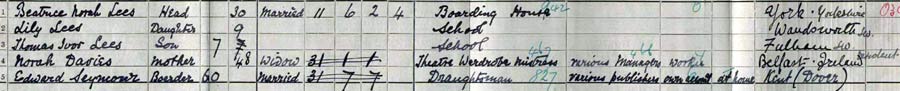 1 Beatrice Norah Lees Head 30 Married 11 6 2 4 Boarding House 642 0 York - Yorkshire 03
2 Lily Lees Daughter 9 School Wandsworth Sw.
3 Thomas Ivor Lees Son 7 7 School Fulham Sw.
4 Norah Davies Mother 48 Widow 31 1 1 Theatre Werdrobe Mistress various Managers worker Belfast - Ireland resident
5 Edward Seymour Boarder 60 Married 31 7 7 Draughtsman 827 various publishers own account at home Kent (Dover)